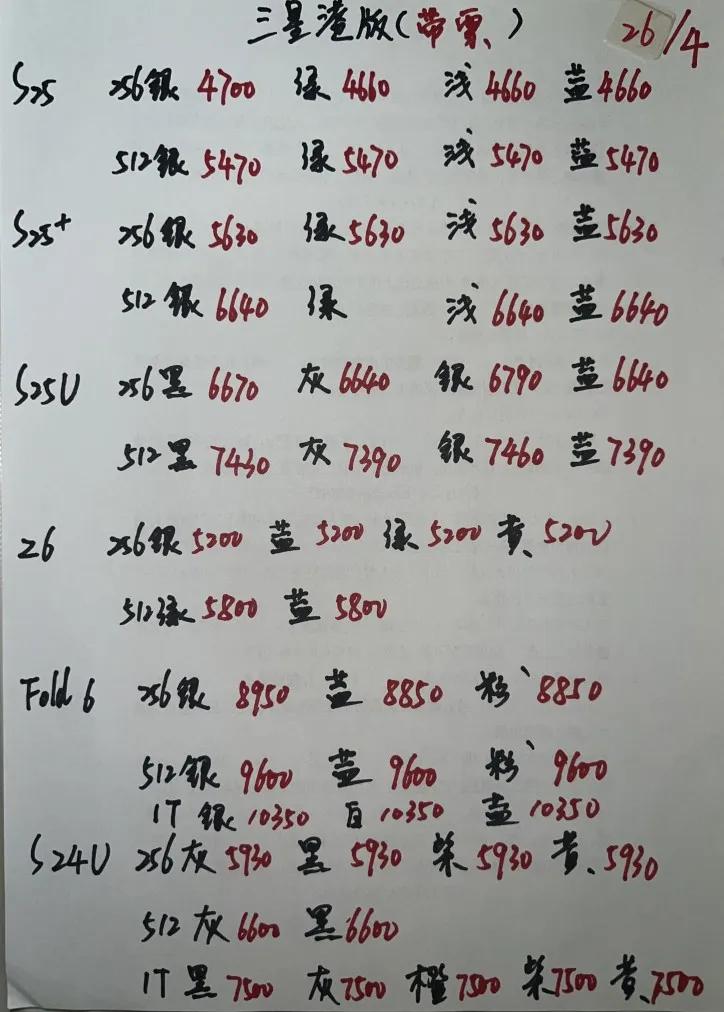 三星渣版(带票) 26/4
S25 256银 4700 绿 4660 浅 4660 蓝 4660
512银 5470 绿 5470 浅 5470 蓝 5470
S25+ 256银 5630 绿 5630 浅 5630 蓝 5630
512银 6640 绿 浅 6640 蓝 6640
S25U 256黑 6670 灰 6640 银 6790 蓝 6640
512黑 7430 灰 7390 银 7460 蓝 7390
Z6 256银 5200 蓝 5200 绿 5200 黄 5200
512绿 5800 蓝 5800
Fold 6 256银 8950 蓝 8850 粉 8850
512银 9600 蓝 9600 粉 9600
1T 银 10350 白 10350 蓝 10350
S24U 256灰 5930 黑 5930 紫 5930 黄 5930
512灰 6600 黑 6600
1T 黑 7500 灰 7500 橙 7500 紫 7500 黄 7500